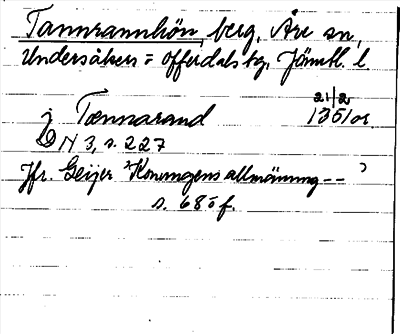 Tannrannhön, berg, Åre sn,
Undersåkers = Offerdals tg, Jämtl. l
j Tænnarand 21/2 1351 or.
DN 3, s. 227
Jfr. Geijer "Konungens allmänning --"
s. 685 f.